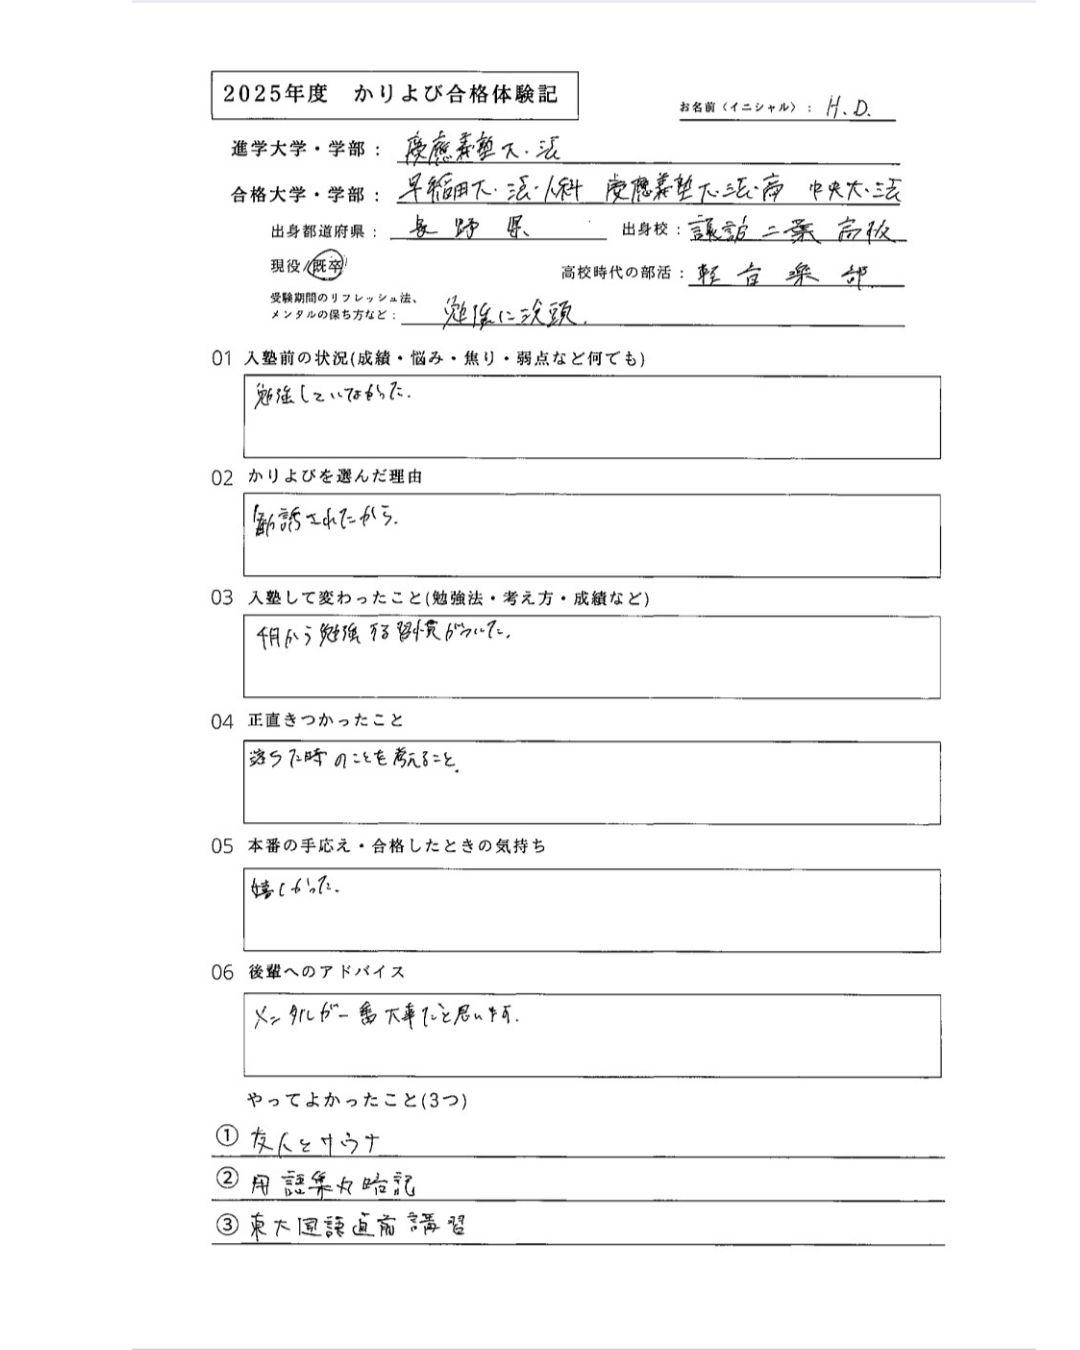 2025年度 かりよび合格体験記
お名前(イニシャル): H.D.
進学大学・学部: 慶應義塾大・法
合格大学・学部: 早稲田大・法・人科 慶應義塾大・法・商 中央大・法
出身都道府県: 長野県 出身校: 諏訪二葉高校
現役/既卒 高校時代の部活: 軽音楽部
受験期間のリフレッシュ法、
メンタルの保ち方など: 勉強に没頭.
01 入塾前の状況(成績・悩み・焦り・弱点など何でも)
勉強していなかった.
02 かりよびを選んだ理由
勧誘されたから.
03 入塾して変わったこと(勉強法・考え方・成績など)
から勉強する習慣がついた.
04 正直きつかったこと
落ちた時のことを考えること.
05 本番の手応え・合格したときの気持ち
嬉しかった.
06 後輩へのアドバイス
メンタルが一番大事だと思います.
やってよかったこと(3つ)
① 友人とサウナ
② 用語集丸暗記
③ 東大国語直前講習